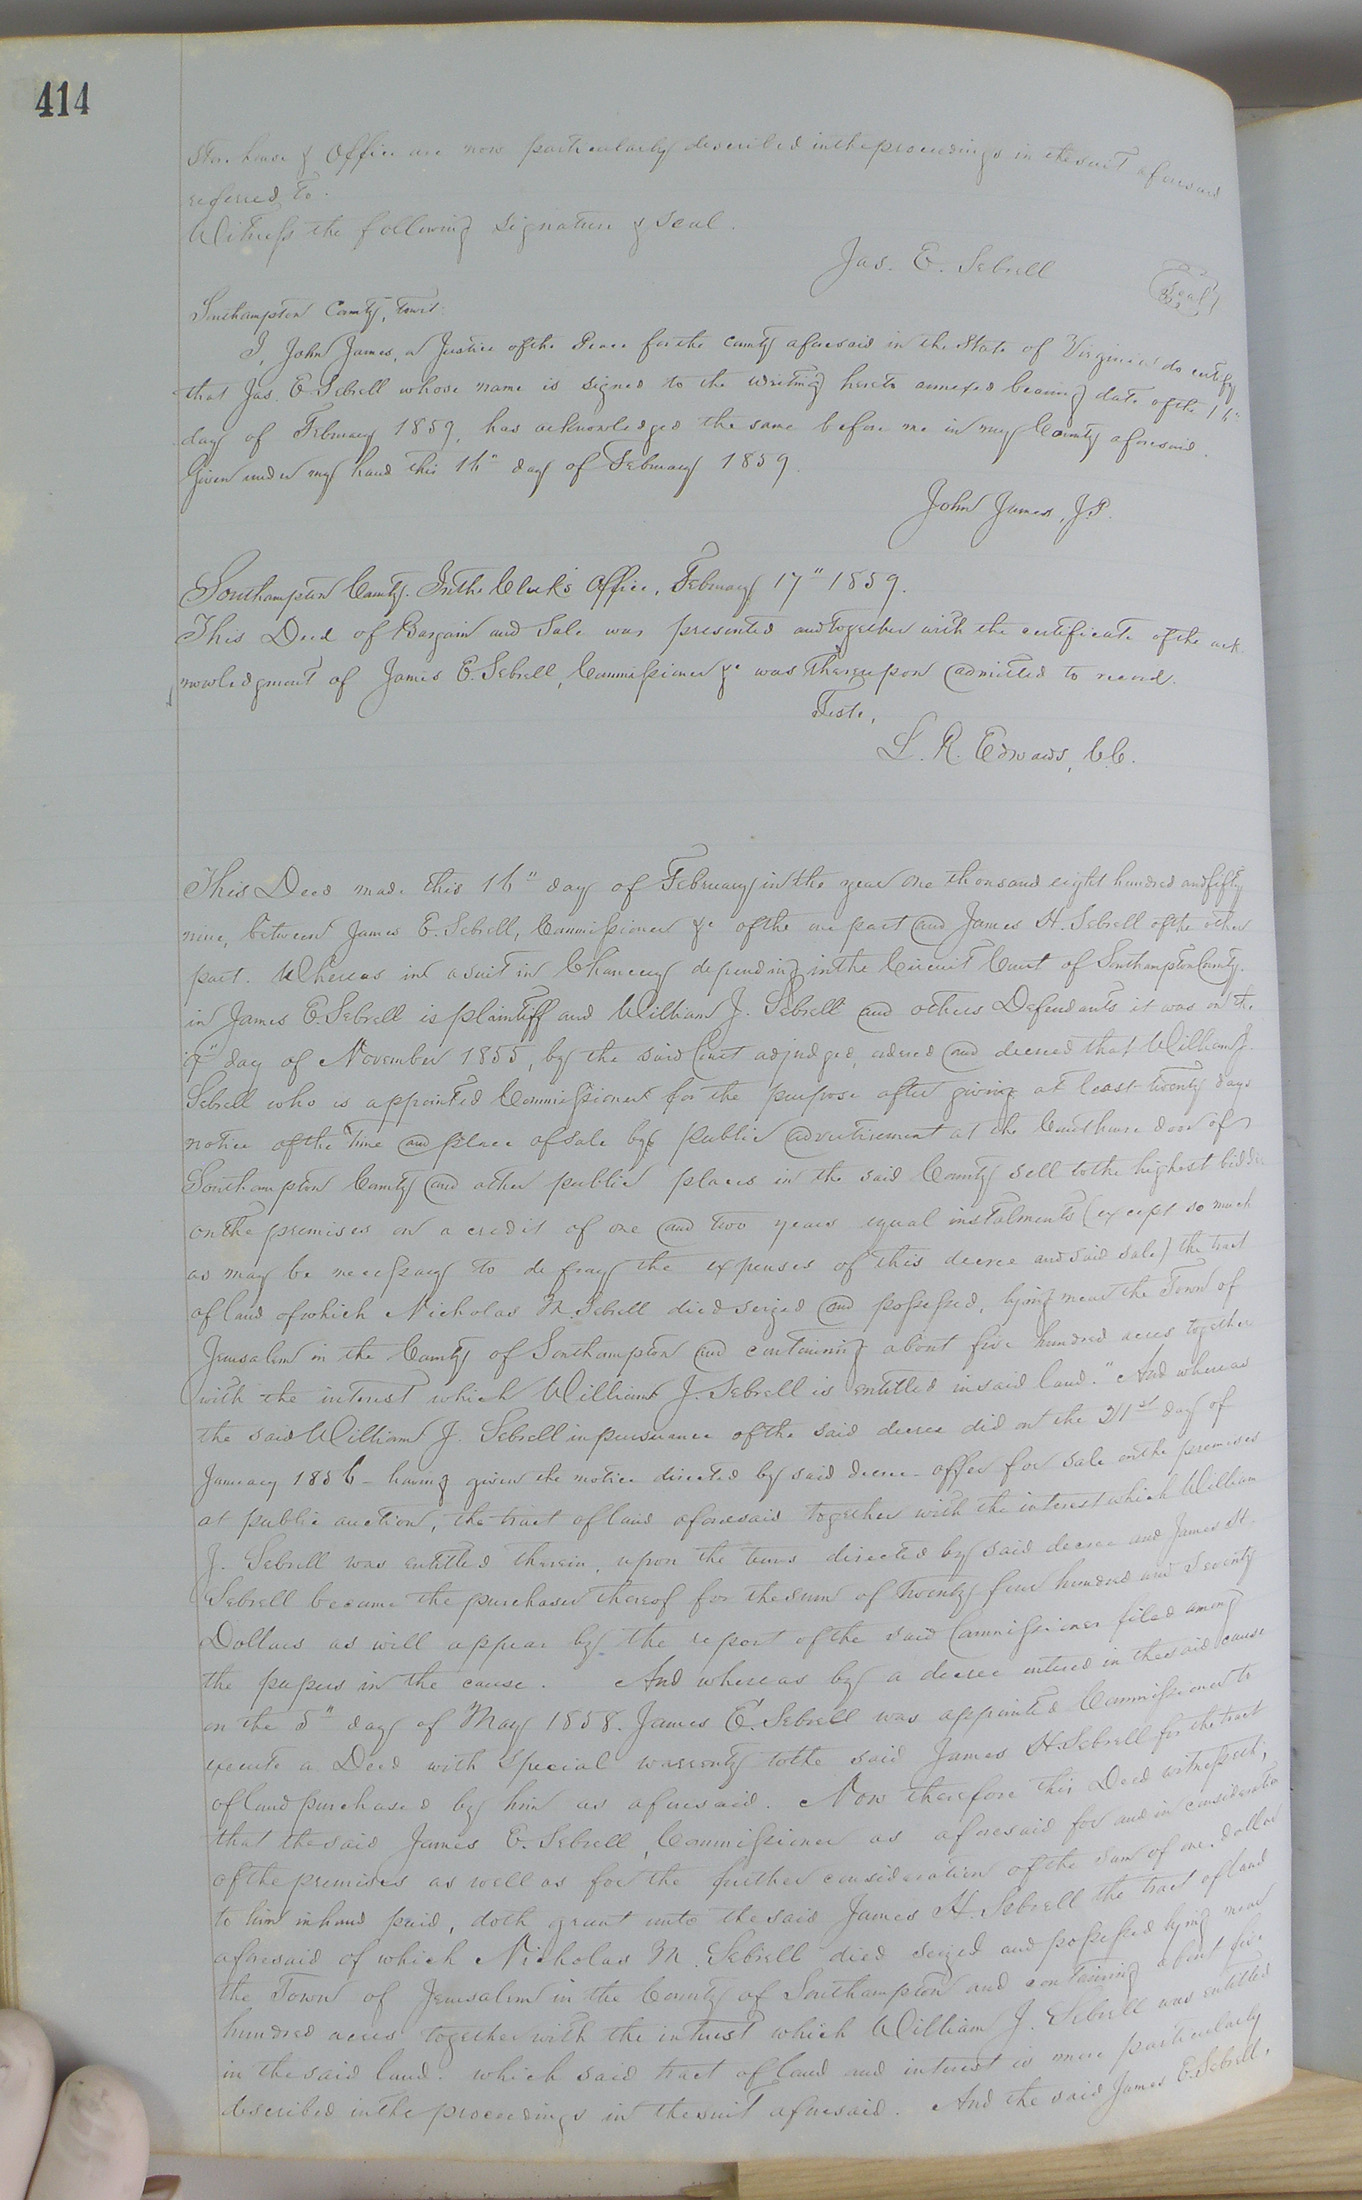 414
Store house & Office are now particularly described in the proceedings in the suit aforesaid
referred to.
Witness the following signature & seal.
Jas. E. Sebrell
Seal
Southampton County, towit.
I, John James, a Justice of the Peace for the County aforesaid in the State of Virginia do certify
that Jas. E. Sebrell whose name is signed to the writing hereto annexed bearing date of the 16"
day of February 1859, has acknowledged the same before me in my County aforesaid.
Given under my hand this 16" day of February 1859.
John James, J.P.
Southampton County. In the Clerk's Office, February 17" 1859.
This Deed of Bargain and Sale was presented and together with the certificate of the ack
nowledgment of James E. Sebrell, Commissioner &c was thereupon admitted to record.
Teste,
L. R. Edwards, C.C.
This Deed made this 16" day of February in the year One thousand eight hundred and fifty
nine, between James E. Sebrell, Commissioner &c of the one part and James H. Sebrell of the other
part. Whereas in a suit in Chancery depending in the Circuit Court of Southampton County.
in James E. Sebrell is plaintiff and William J. Sebrell and others Defendants it was on the
day of November 1855, by the said Court adjudged, ordered and decreed that William J.
Sebrell who is appointed Commissioner for the purpose after giving at least twenty days
notice of the time and place of sale by public advertisement at the Courthouse door of
Southampton County and other public places in the said County sell to the highest bidder
on the premises on a credit of one and two years equal instalments (except so much
as may be necessary to defray the expenses of this decree and said sale) the tract
of land of which Nicholas M. Sebrell died seized and possessed, lying near the Town of
Jerusalem in the County of Southampton and containing about five hundred acres together
with the interest which William J. Sebrell is entitled in said land." And whereas
the said William J. Sebrell in pursuance of the said decree did on the 21st day of
January 1856 - having given the notice directed by said decree - offer for sale on the premises
at public auction, the tract of land aforesaid together with the interest which William
J. Sebrell was entitled therein, upon the terms directed by said decree and James H.
Sebrell became the purchaser thereof for the sum of Twenty four hundred and seventy
Dollars as will appear by the report of the said Commissioner filed among
the papers in the cause. And whereas by a decree entered in the said cause
on the 5" day of May 1858. James E. Sebrell was appointed Commissioner to
execute a Deed with special warrenty to the said James H. Sebrell for the tract
of land purchased by him as aforesaid. Now therefore this Deed witnesseth,
that the said James E. Sebrell, Commissioner as aforesaid for and in consideration
of the premises as well as for the further consideration of the sum of one dollar
to him in hand paid, doth grant unto the said James H. Sebrell the tract of land
aforesaid of which Nicholas M. Sebrell died seized and possessed lying near
the Town of Jerusalem in the County of Southampton and containing about five
hundred acres together with the interest which William J. Sebrell was entitled
in the said land. which said tract of land and interest is more particularly
described in the proceedings in the suit aforesaid. And the said James E. Sebrell,